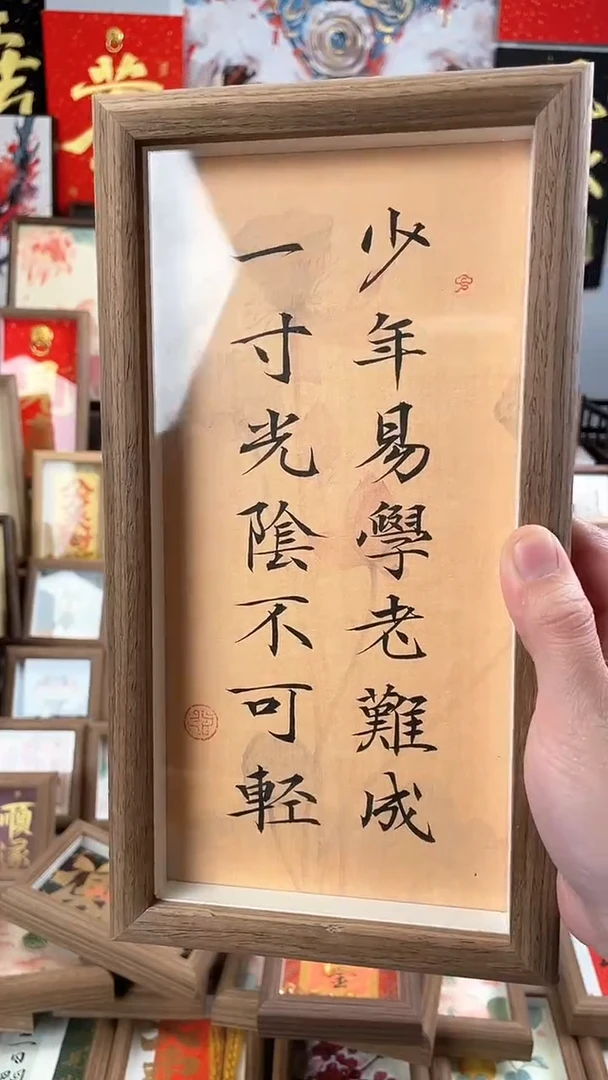 少年易學老難成
一寸光陰不可軽
順